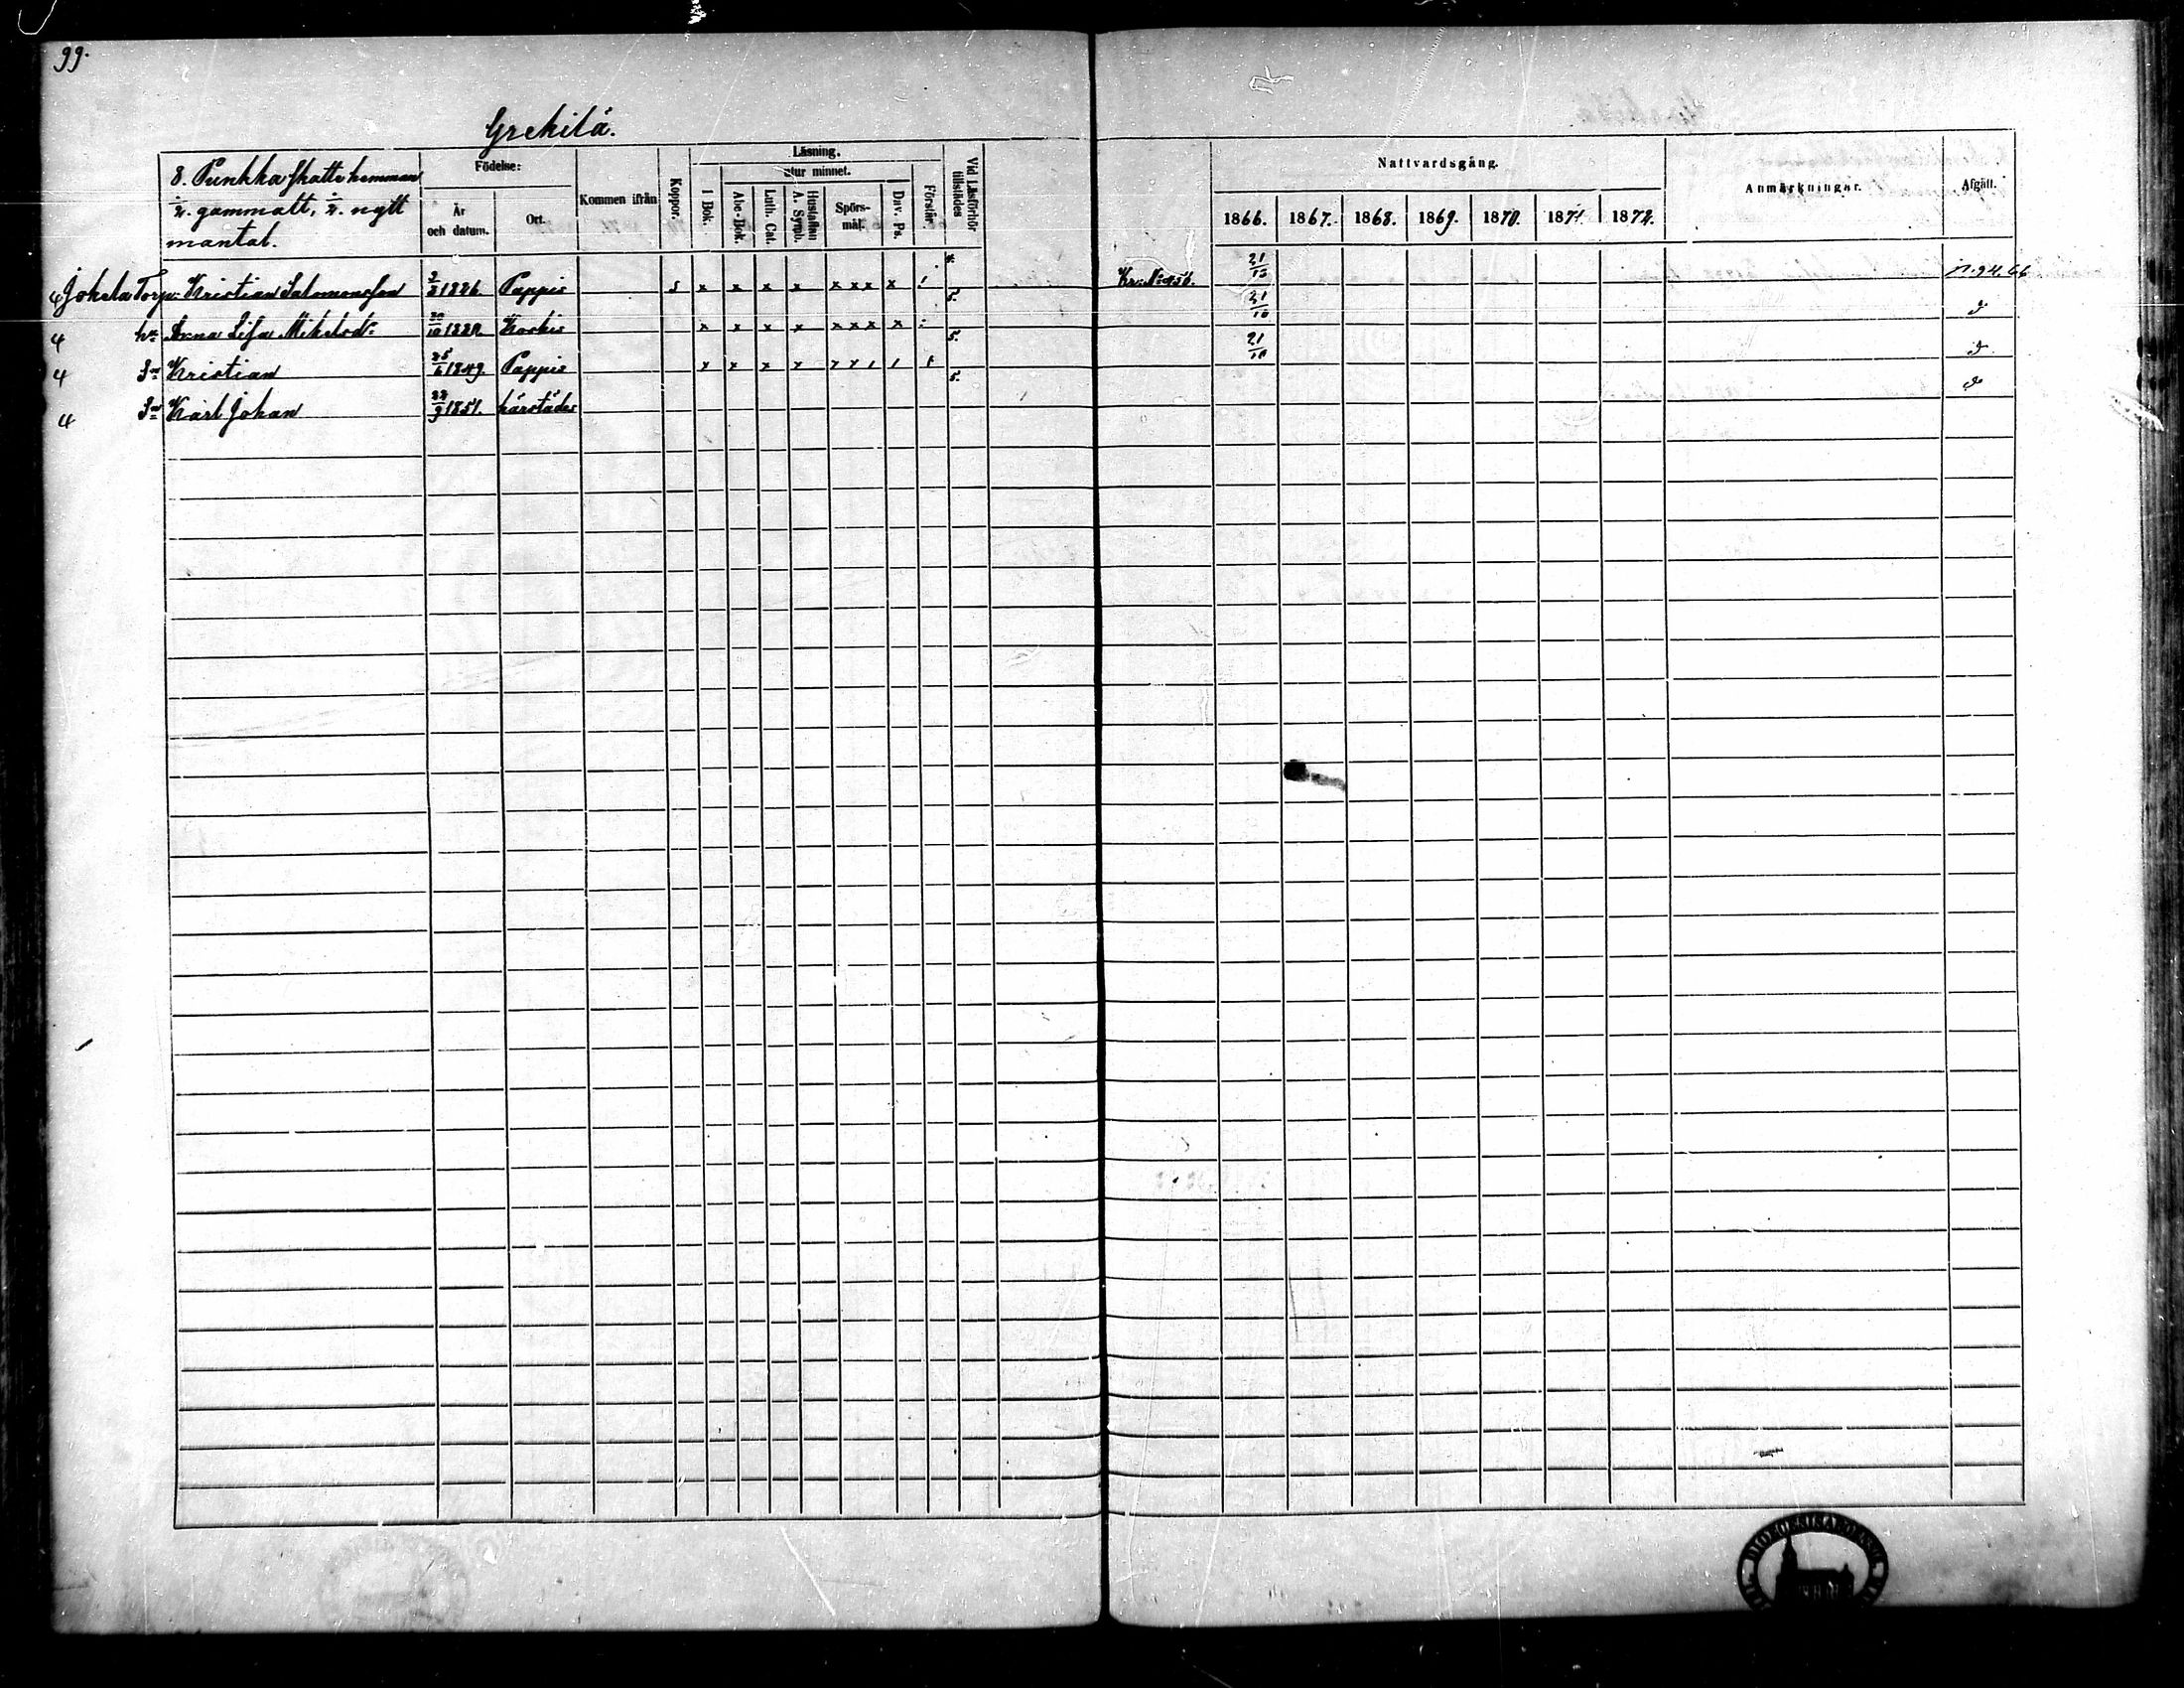 99.
Grekilä.
8. Punkka Skatte hemman
1/2. gammalt, 1/2. nytt
mantal.
Födelse:
År och datum.
Ort.
Kommen ifrån
Koppor.
Läsning.
utur minnet.
I Bok.
Abc-Bok.
Luth. Cat.
Hustaflan A. Symb.
Spörs-mål.
Dav. Ps.
Förstår.
Vid Läsförhör tillstädes
Nattvardsgång.
1866. 1867. 1868. 1869. 1870. 1871. 1872.
Anmärkningar.
Afgått.
4 Jokela Torp. Kristian Salomonsson 1826. Pappis 5 x x x x x x x x 4. 21/10 p. 94. 66
4 hu Anna Lisa Mikelsdr 1822. Koskis x x x x x x x x 5. 21/10 d
4 Sn Kristian 25/6 1849 Pappis x x x x x x 1 1 1 5. 21/10 d
4 Sn Karl Johan 1851. härstädes 5. d